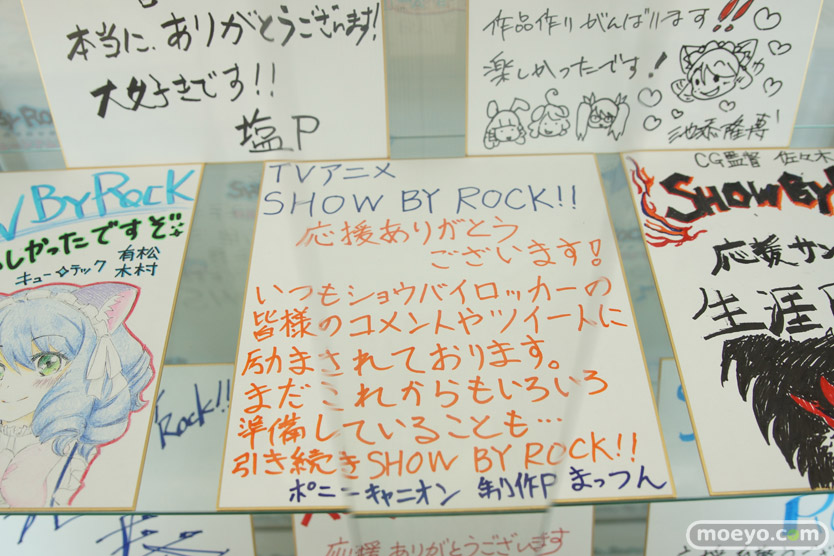 本当に、ありがとうございます!
大好きです!!
塩P
作品作りがんばります!!
楽しかったです!
CG監督 佐々木
BY ROCK
しかったですぞ
キュー☆テック 有松
木村
TVアニメ
SHOW BY ROCK!!
応援ありがとう
ございます!
いつもショウバイロッカーの
皆様のコメントやツイートに
励まされております。
まだこれからもいろいろ
準備していることも…
引き続きSHOW BY ROCK!!
ポニーキャニオン 制作P まっつん
SHOW BY
応援サン
生涯
Rock!!
応援ありがとうございます
moeyo.com